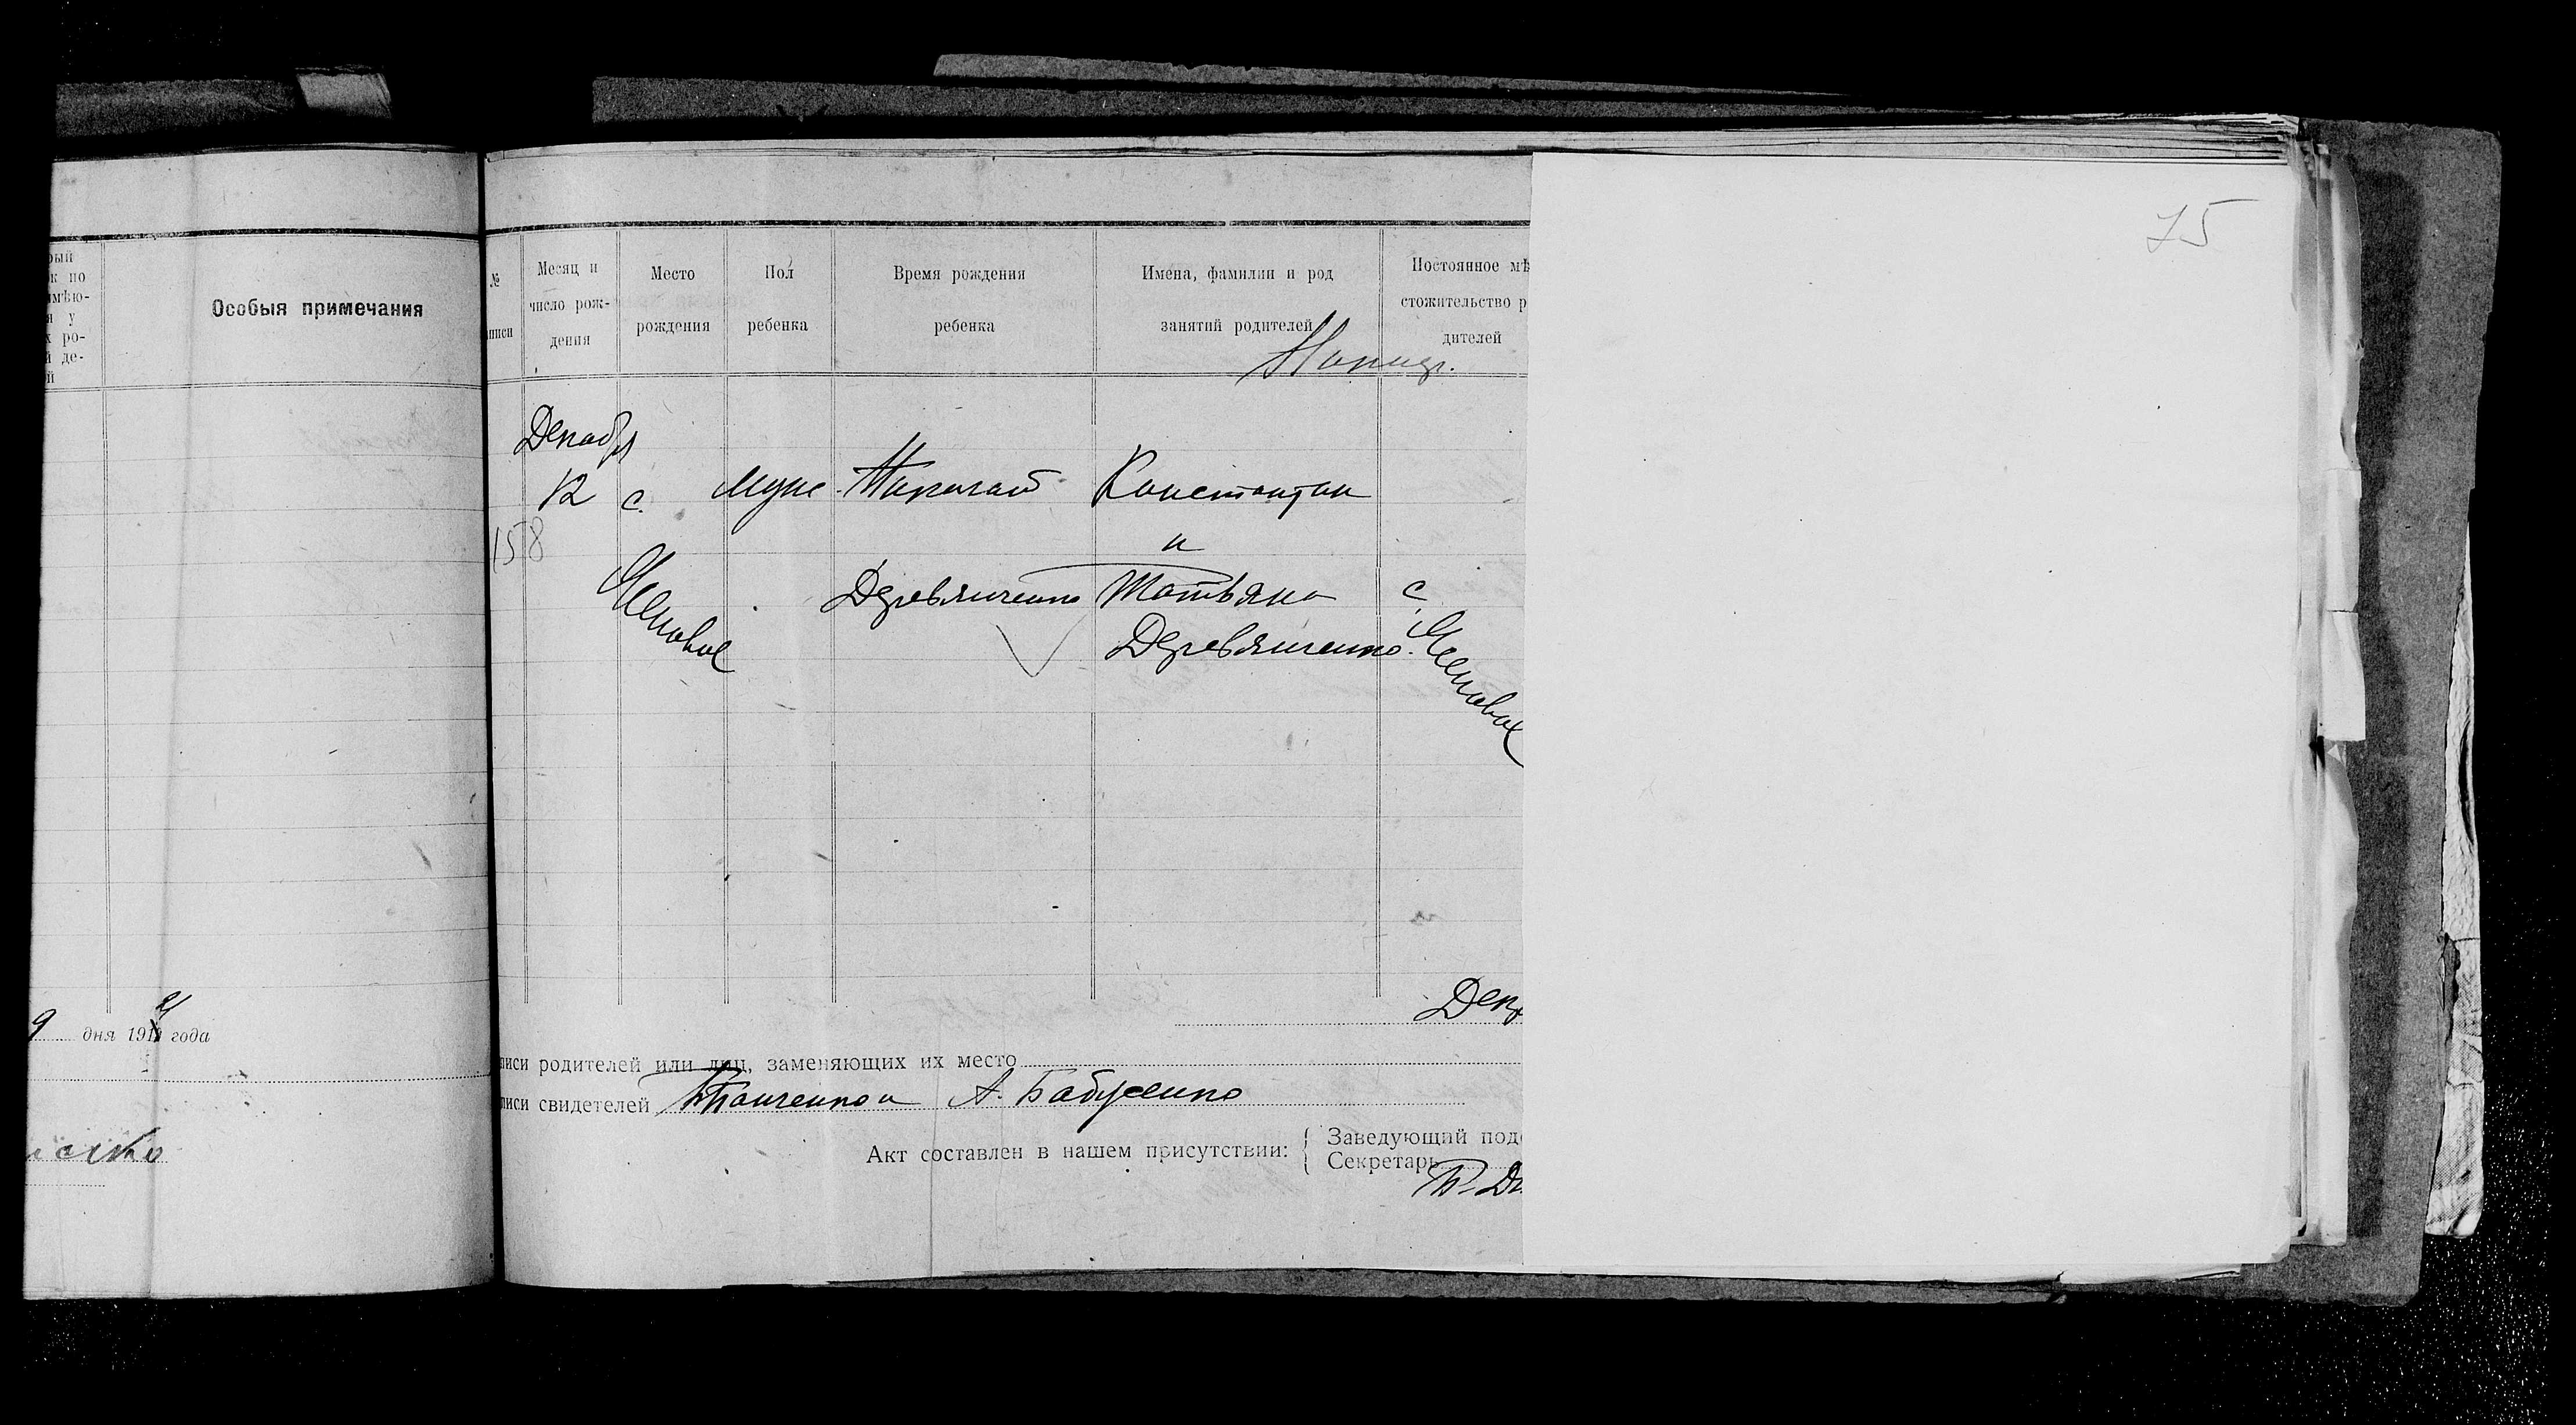 рый
к по
имѣю-
я у
х ро-
й де-
ой
Особыя примечания
9 дня 1919 года
№
писи
Месяц и
число рож-
дения
Место
рождения
Пол
ребенка
Время рождения
ребенка
Имена, фамилии и род
занятий родителей
Постоянное мѣ
стожительство р
дителей
Декабр
12 с. муж. Николай Константин
158
и
Деревянченко Татьяна с.
Деревянченко.
75
Дек
писи родителей или лиц, заменяющих их место
писи свидетелей Панченко и А. Бабусенко
Акт составлен в нашем присутствии:
Заведующий под
Секретарь